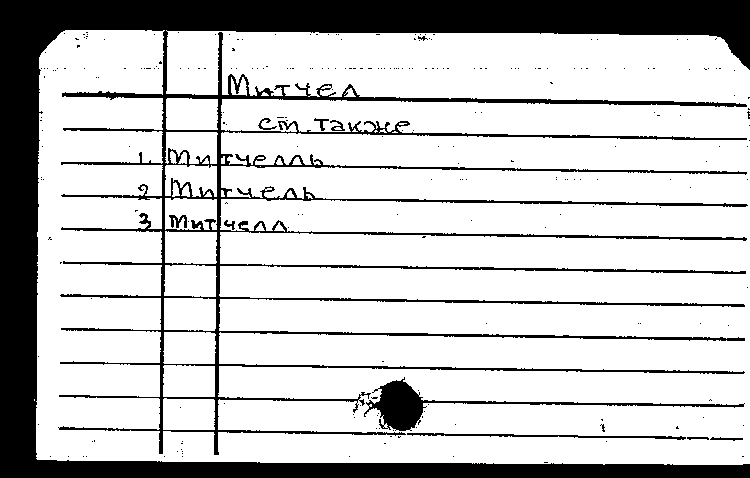 Митчел
см. также
1. Митчелль
2 Митчель
3 Митчелл